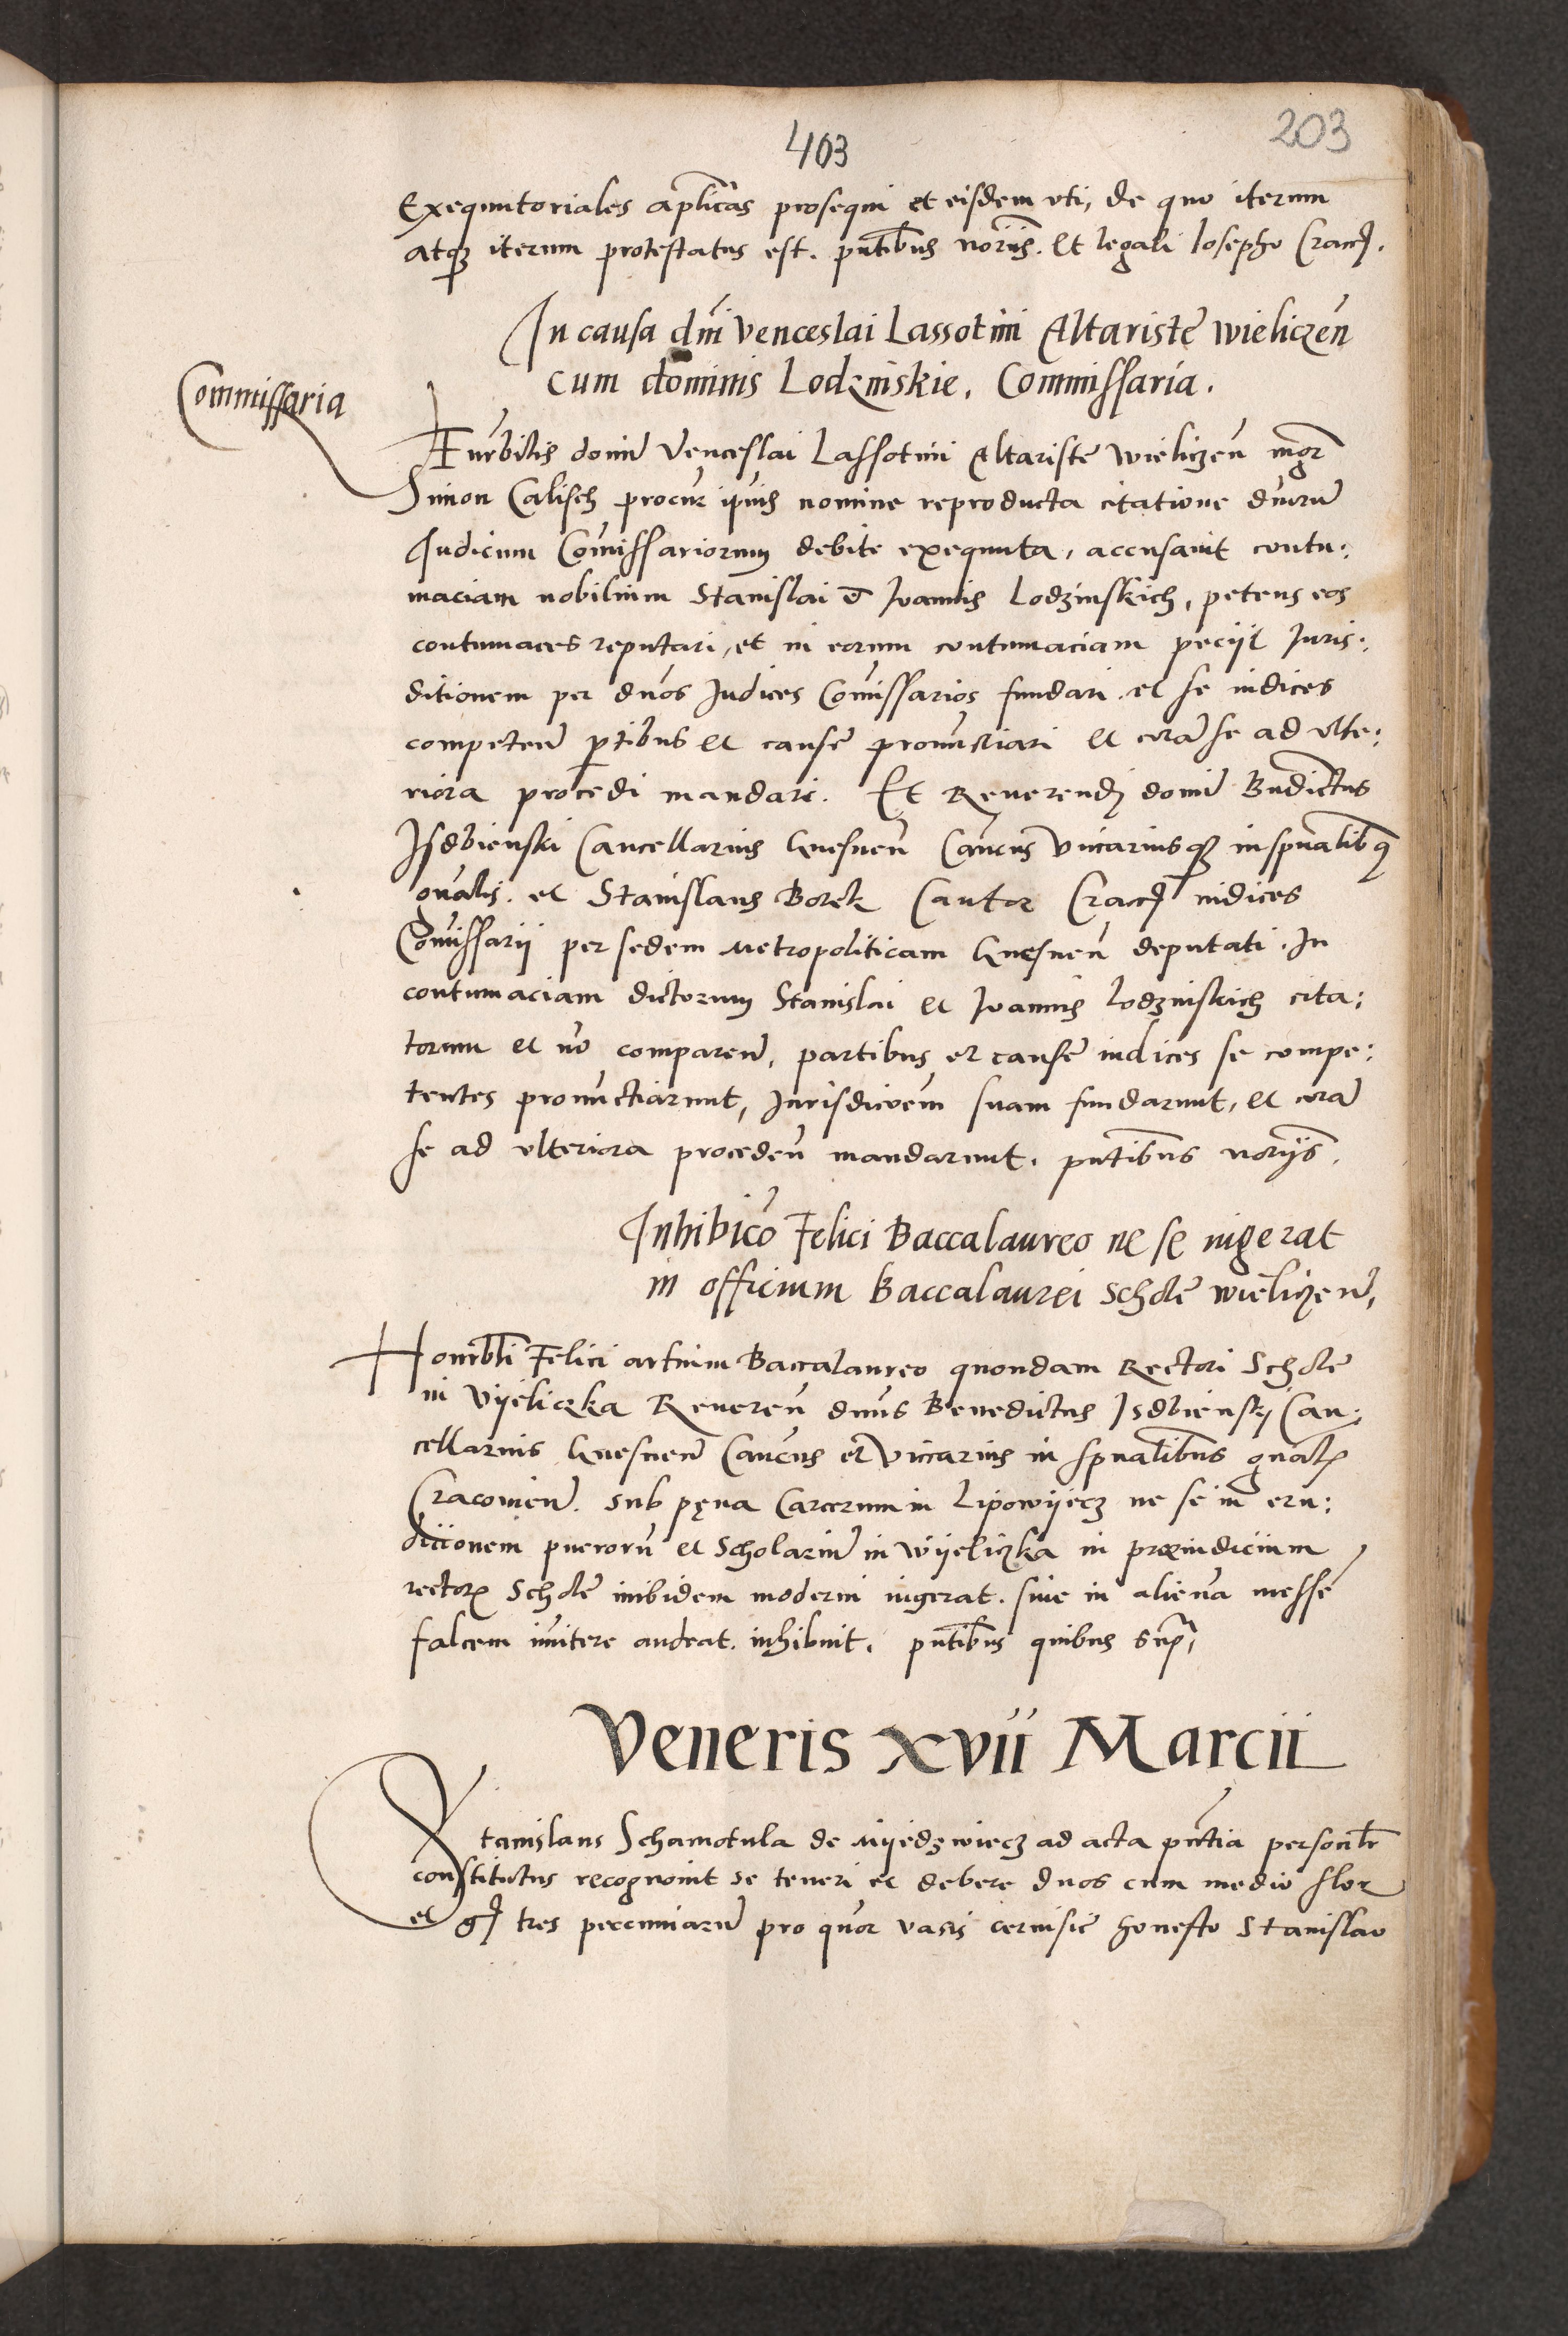 403
203
Exequutoriales aplicas prosequi et eisdem uti, de quo iterum
atq3 iterum protestatus est. pntibus noriis. Et legali Iosepho Crac.
In causa dni Venceslai Lassotini Altariste wieliczen
cum dominis Lodzinskie. Commissaria.
Commissaria
Hurbilis domi Venceslai Lassotini Altariste wieliczen mgr
Simon Calisch procur ipius nomine reproducta citatione dnorum
Iudicum Comissariorum debite exequuta, accusavit contu:
maciam nobilium Stanislai et Ioannis Lodzinskich, petens eos
contumaces reputari, et in eorum contumaciam peciit Iuris:
ditionem per dnos Iudices Comissarios fundari et se iudices
competen ptibus et cause pronunctiari et cora se ad ulte:
riora procedi mandari. Et Reverendi domi Bndictus
Isdbienski Cancellarius Gnesnen Cancus Vicariusq3 in spualibq
gnalis. et Stanislaus Borek Cantor Crac iudices
Comissarii per sedem Metropoliticam Gnesnen deputati. In
contumaciam dictorum Stanislai et Ioannis Lodzinskich cita:
torum et no comparen, partibus et cause iudices se compe:
tentes pronunctiarunt, Iurisdicoem suam fundarunt, et cora
se ad ulteriora proceden mandarunt. pntibus noriis.
Inhibico Felici Baccalaureo ne se ingerat
in officium Baccalaurei Schole wieliczen,
Honorbli Felici artium Baccalaureo quondam Rectori Schole
in Vyeliczka Reveren dnus Benedictus Isdbiensky Can:
cellarius Gnesnen Cancus et Vicarius in spualibus gnalis
Cracovien. sub pęna Carcerum in Lipowyecz ne se in eru:
diciionem puerorum et Scholarium in Wyeliczka in praeiudicium
rectoris Schole inibidem moderni ingerat. sive in aliena messe
falcem imitere audeat. inhibuit. pntibus quibus supra,
Veneris XVII Marcii
Stanislaus Schamotula de Myedzwiecz ad acta pntia personlr
constitutus recognovit se teneri et debere duos cum medio flor
et g tres pecuniarum pro quor vasis cervisie honesto Stanislao